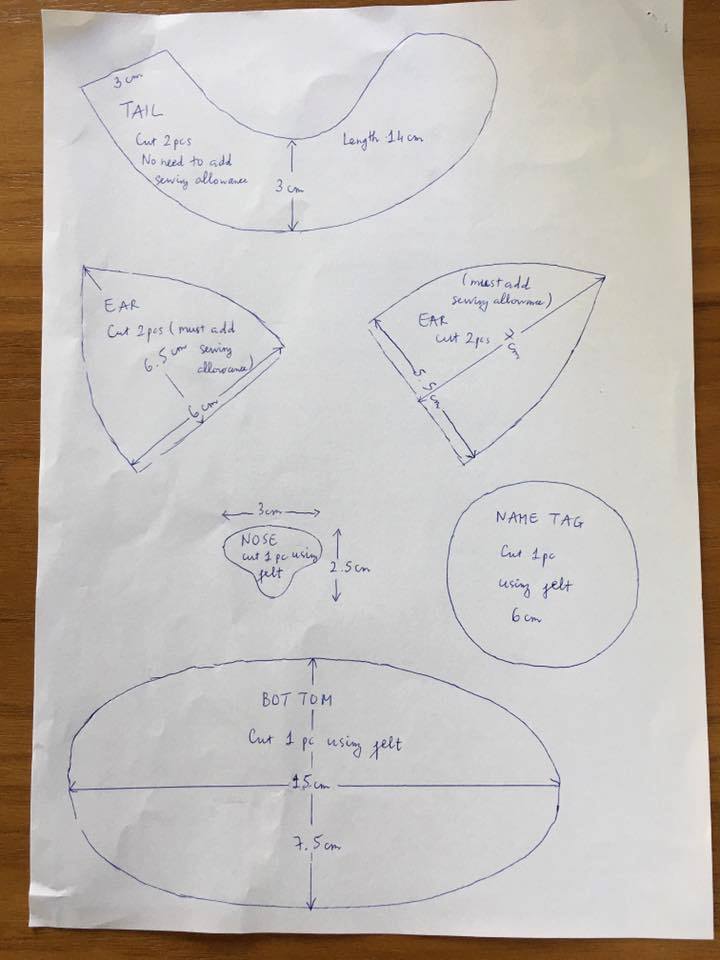 3 cm
TAIL
Cut 2 pcs
No need to add
sewing allowance
Length 14 cm
3 cm
EAR
Cut 2 pcs (must add
sewing
allowance)
6.5 cm
6 cm
(must add
sewing allowance)
EAR
cut 2 pcs
7 cm
5.5 cm
3 cm
NOSE
cut 1 pc using
felt
2.5 cm
NAME TAG
Cut 1 pc
using felt
6 cm
BOTTOM
Cut 1 pc using felt
15 cm
7.5 cm